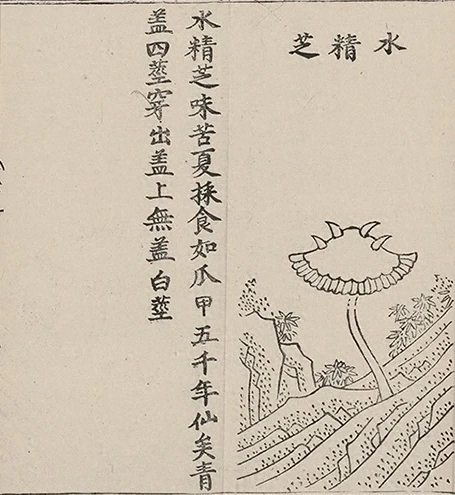 水精芝
水精芝味苦夏採食如爪甲五千年仙矣青
盖四莖穿出盖上無盖白莖